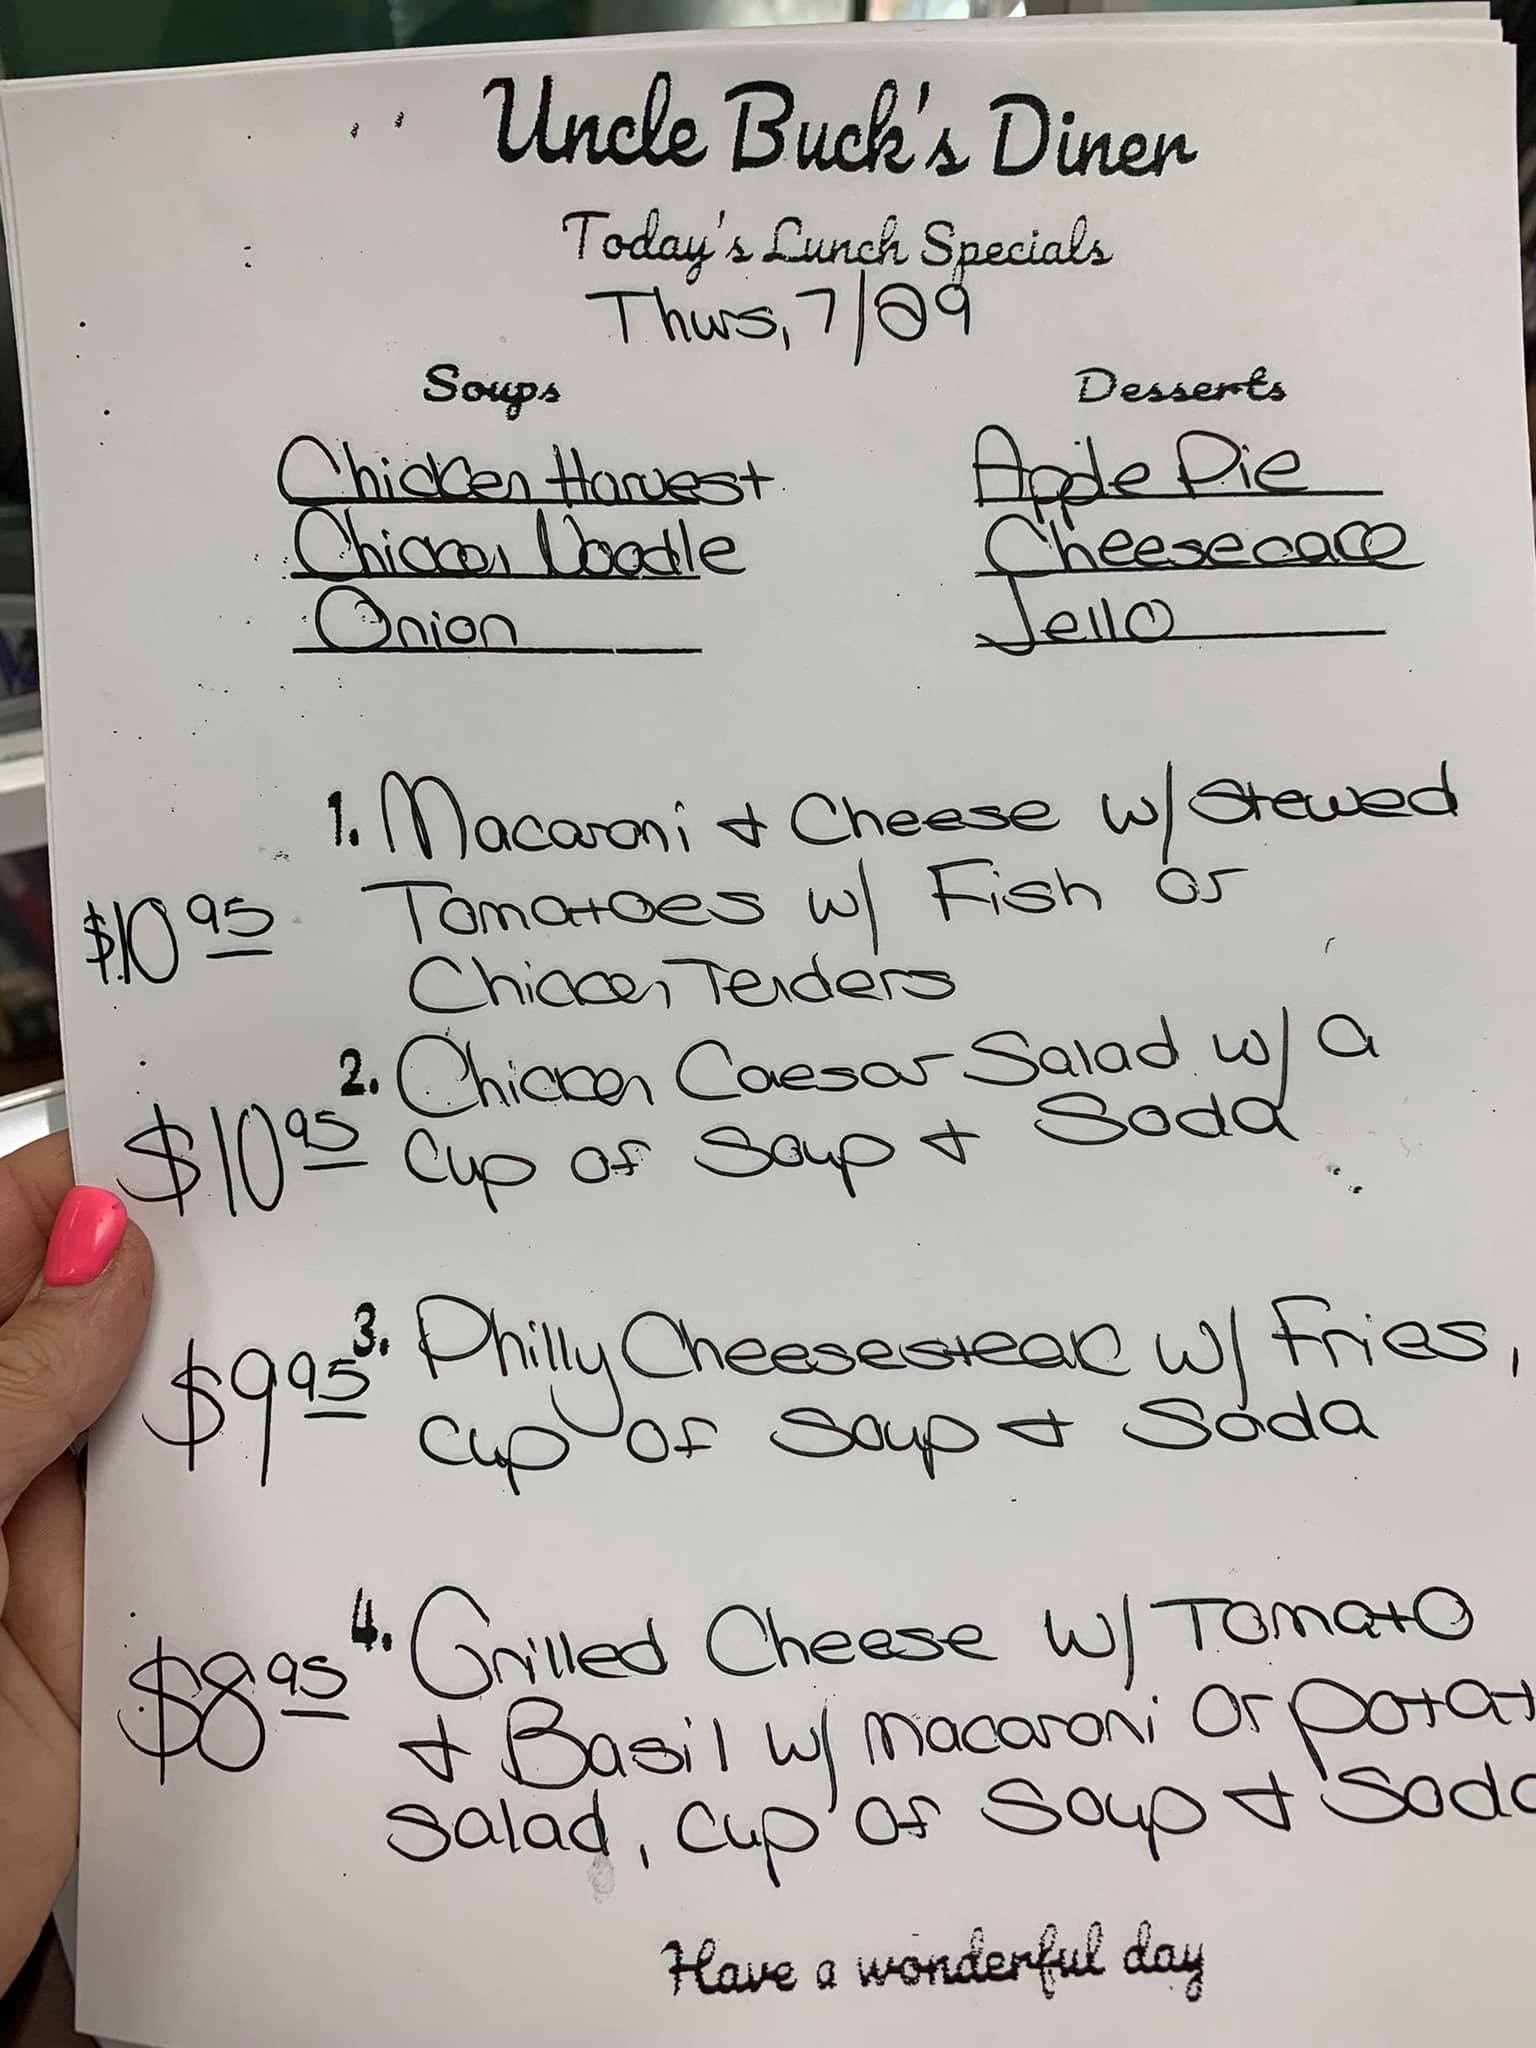 Uncle Buck's Diner
Today's Lunch Specials
Thurs, 7/29
Soups
Desserts
Chicken Harvest
Chicken Noodle
Onion
Apple Pie
Cheesecake
Jello
1. Macaroni + Cheese w/ Stewed
$10 95 Tomatoes w/ Fish or
Chicken Tenders
2. Chicken Caesar Salad w/ a
$10 95 cup of soup + soda
3. Philly Cheesesteak w/ Fries,
$9 95 cup of soup + soda
4. Grilled Cheese w/ Tomato
$8 95 + Basil w/ macaroni or potat
salad, cup of soup + soda
Have a wonderful day